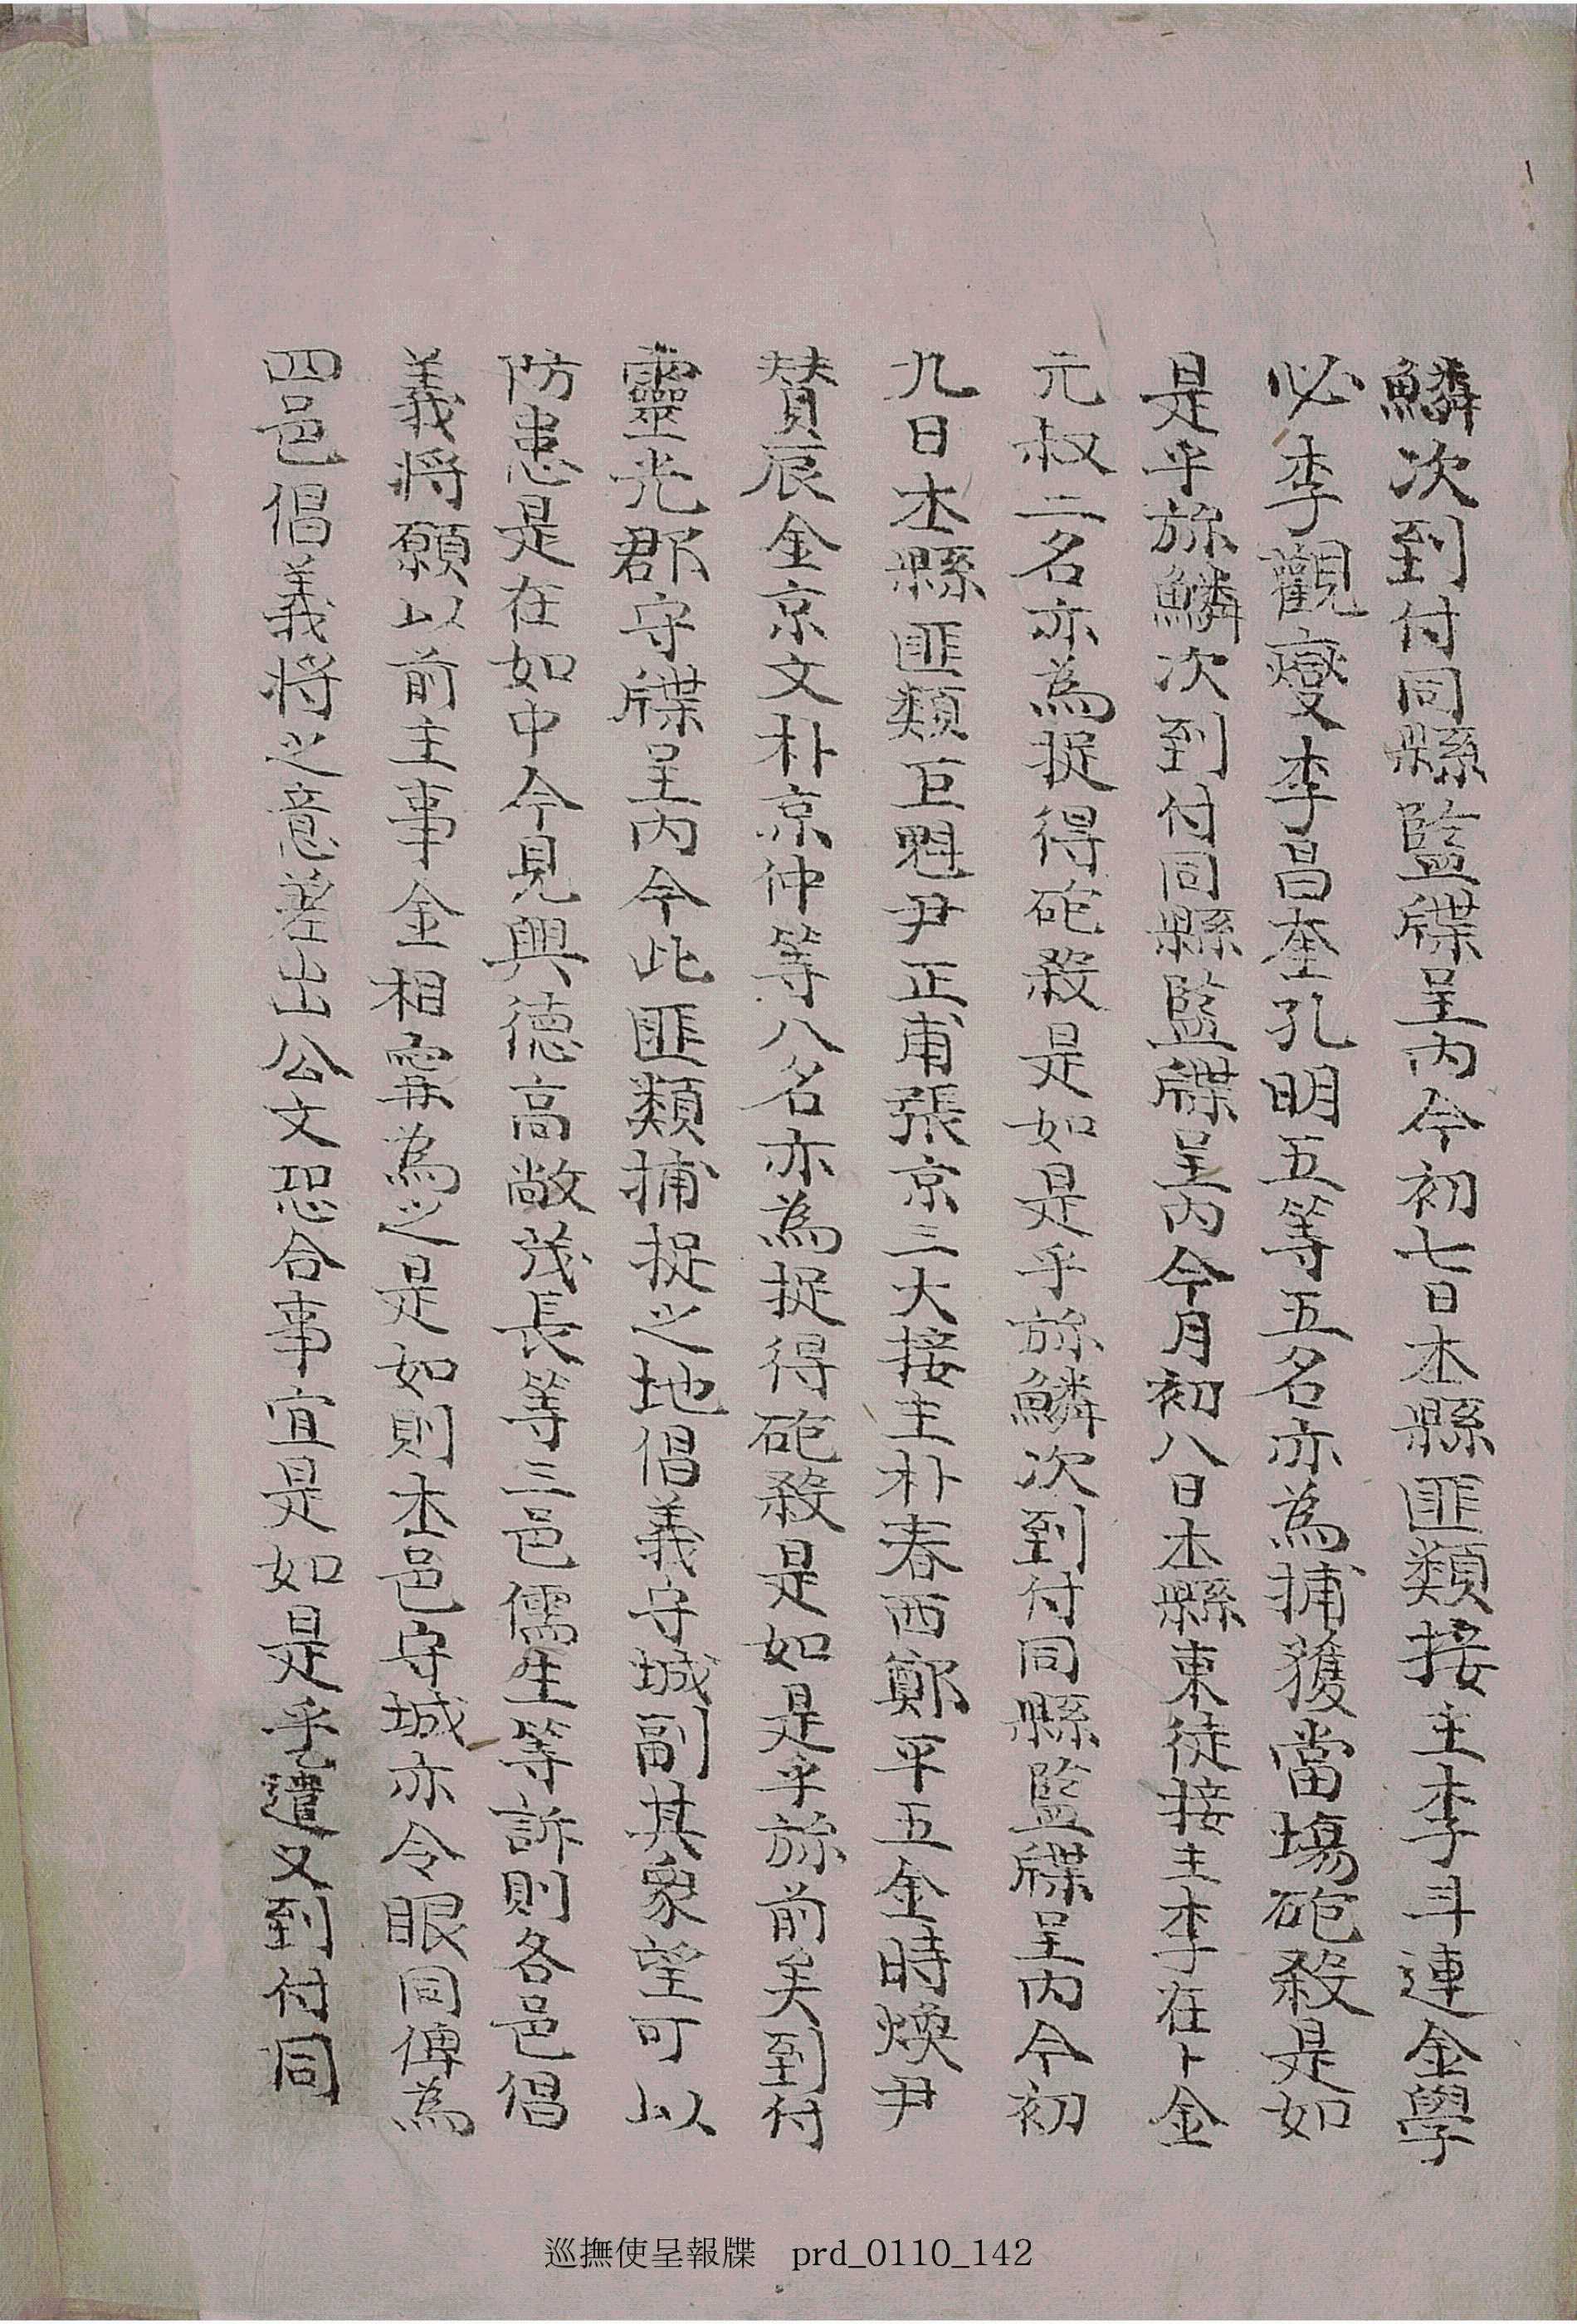 鱗次到付同縣監牒呈內今初七日本縣匪類接主李斗連金學
必李觀燮李昌奎孔明五等五名亦為捕獲當場砲殺是如
是乎旀鱗次到付同縣監牒呈內今月初八日本縣東徒接主李在卜金
元叔二名亦為捉得砲殺是如是乎旀鱗次到付同縣監牒呈內今初
九日本縣匪類巨魁尹正甫張京三大接主朴春西鄭平五金時煥尹
賛辰金京文朴京仲等八名亦為捉得砲殺是如是乎旀前矣到付
靈光郡守牒呈內今此匪類捕捉之地倡義守城副其衆望可以
防患是在如中今見興德高敞茂長等三邑儒生等訴則各邑倡
義將願以前主事金相寯為之是如則本邑守城亦令眼同俾為
四邑倡義將之意差出公文恐合事宜是如是乎遣又到付同
巡撫使呈報牒 prd_0110_142